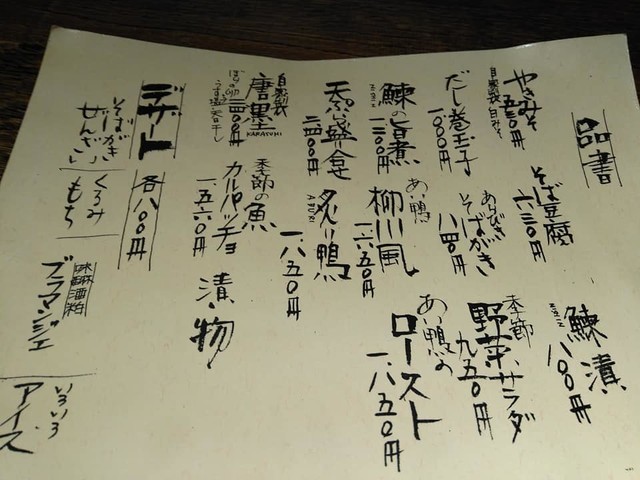 品書
やきみそ
自家製白みそ
五五〇円
そば豆腐
六三〇円
鰊漬
八〇〇円
だし巻玉子
一、一〇〇円
あらびき
そばがき
八四〇円
季節
野菜サラダ
九五〇円
鰊の旨煮
あい鴨
柳川風
一、六五〇円
あい鴨の
ロースト
一、八五〇円
天ぷら盛合
二四〇〇円
炙り鴨
ABURI
一、八五〇円
自家製
唐墨
KARASUMI
季節の魚
カルパッチョ
一、五六〇円
漬物
デザート
各八〇〇円
そばがき
ぜんざい
くるみ
もち
酒粕
ブラマンジェ
いろいろ
アイス